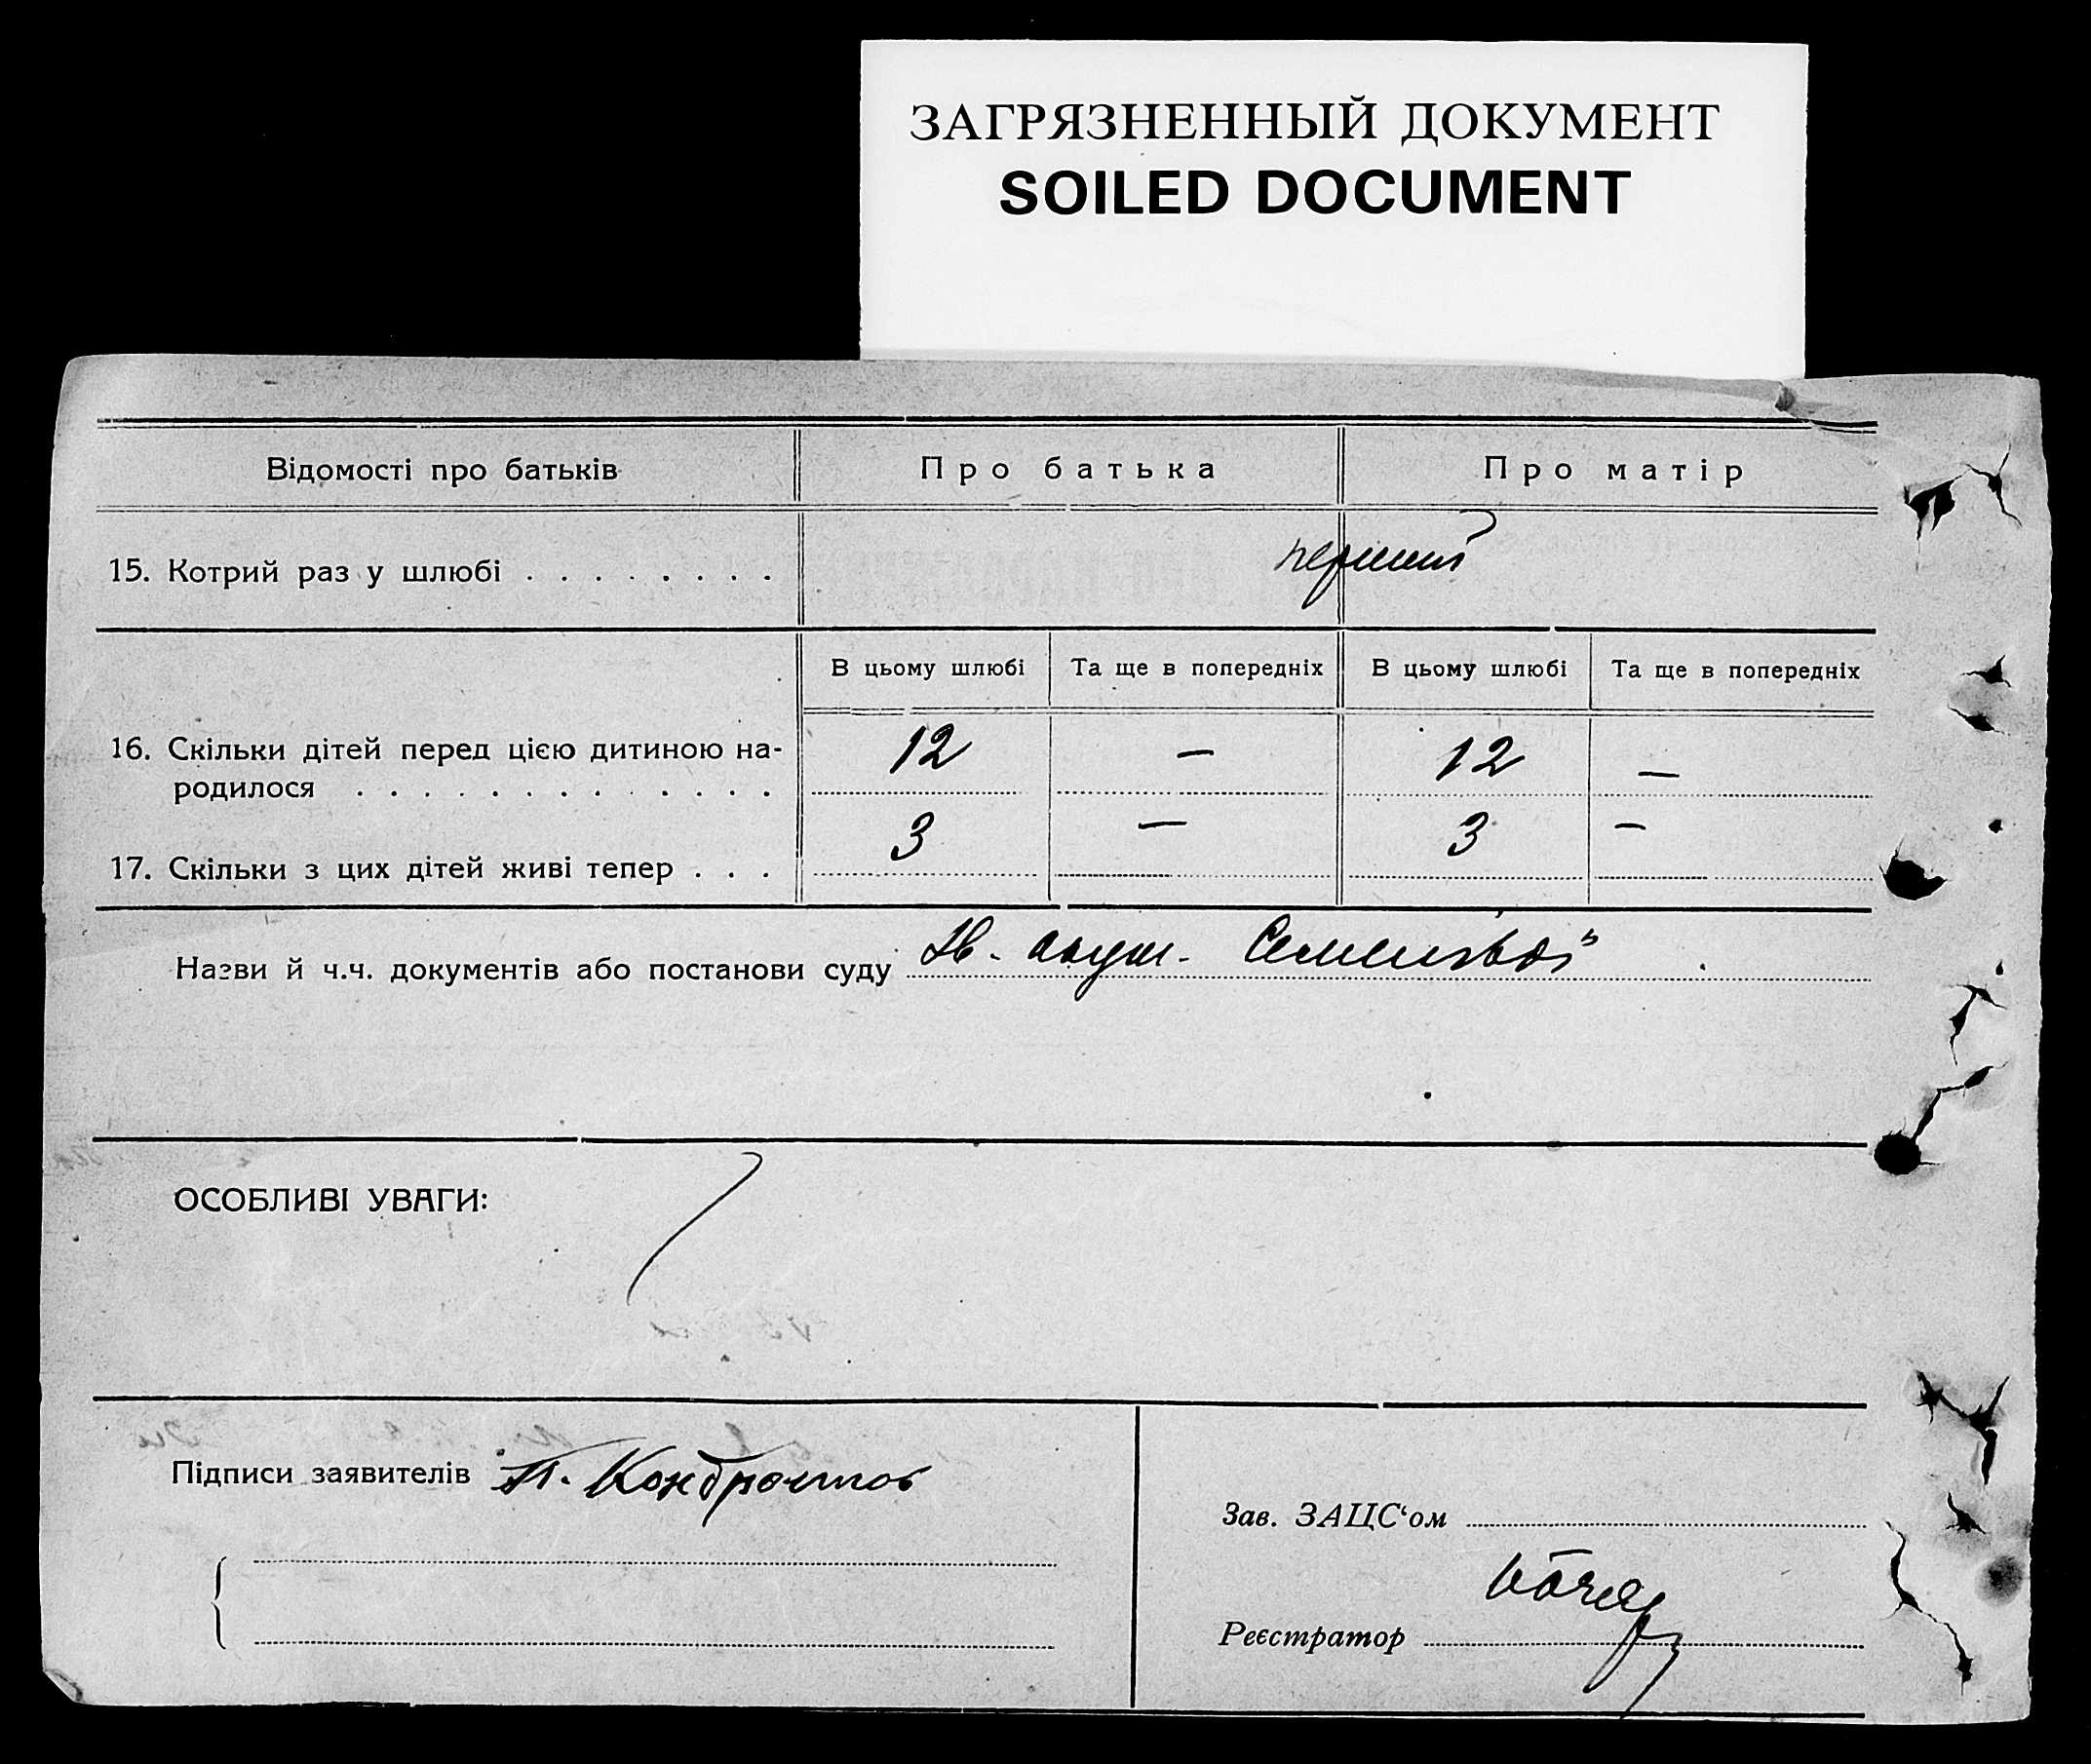 ЗАГРЯЗНЕННЫЙ ДОКУМЕНТ
SOILED DOCUMENT
Відомості про батьків Про батька Про матір
15. Котрий раз у шлюбі . . . . . . . . перший
В цьому шлюбі Та ще в попередніх В цьому шлюбі Та ще в попередніх
16. Скільки дітей перед цією дитиною на-
родилося . . . . . . . . . . . . . 12 — 12 —
17. Скільки з цих дітей живі тепер . . . 3 — 3 —
Назви й ч.ч. документів або постанови суду акуш.
ОСОБЛИВІ УВАГИ:
Підписи заявителів П. Кондратов
Зав. ЗАЦС‘ом
Реєстратор